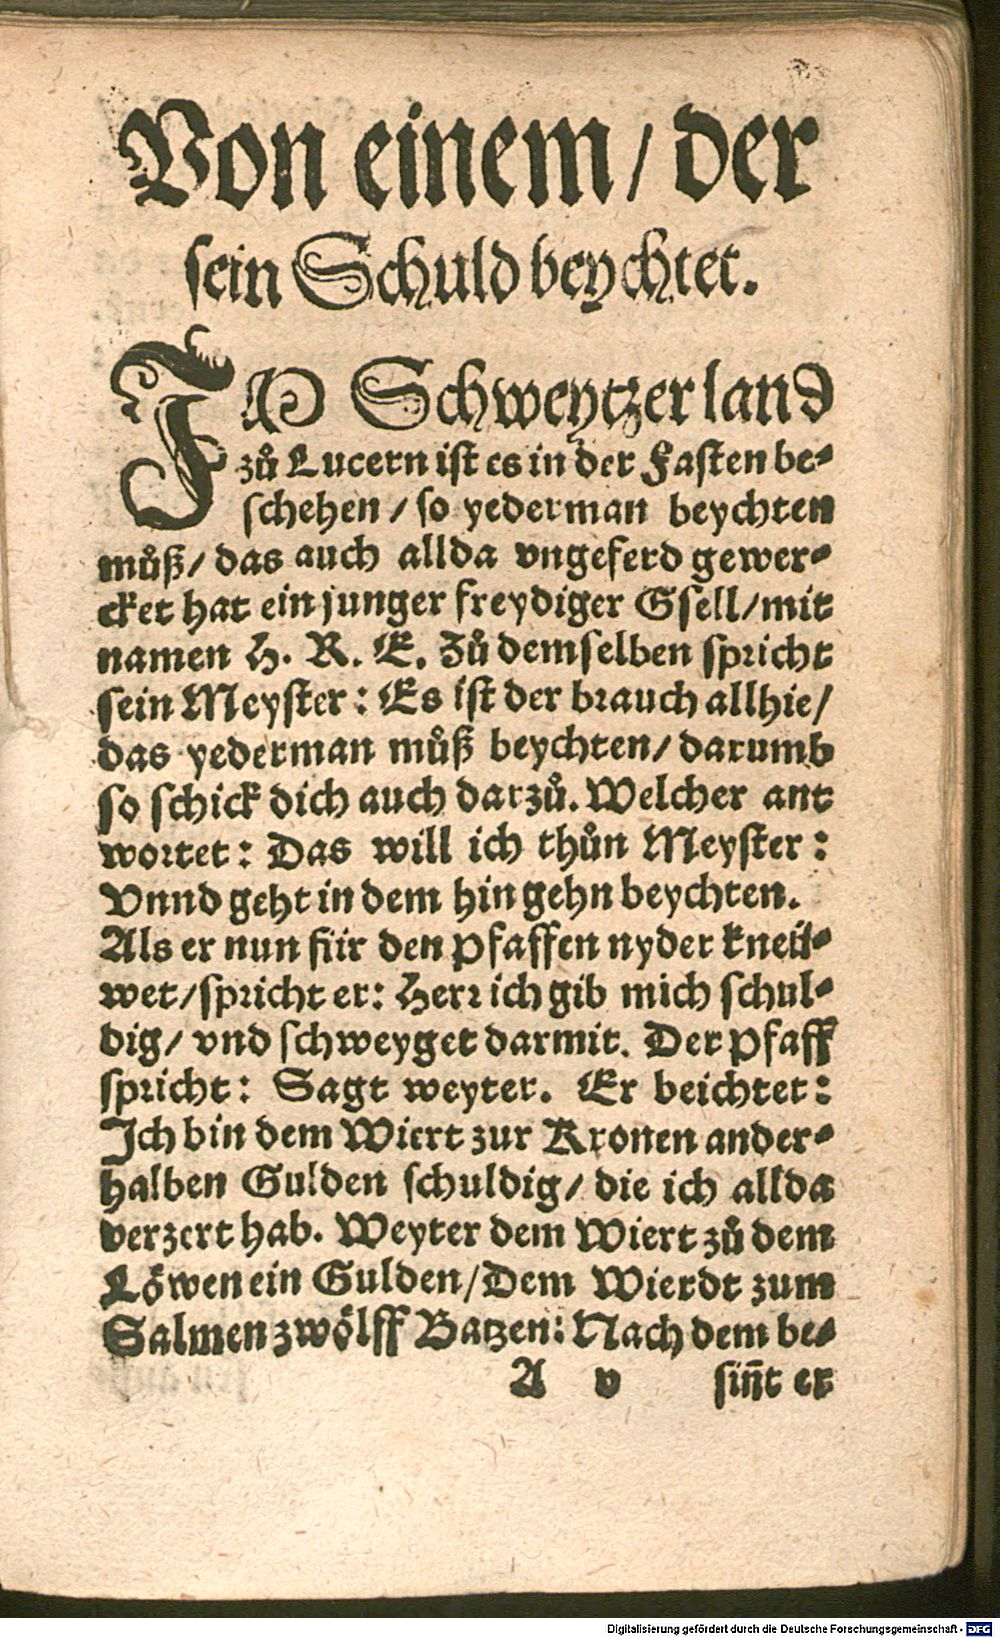 Von einem/ der
sein Schuld beychtet.
IM Schweytzerland
zů Lucern ist es in der Fasten be⸗
schehen/ so yederman beychten
můß/ das auch allda vngeferd gewer⸗
cket hat ein junger freydiger Gsell/ mit
namen H. R. E. Zů demselben spricht
sein Meyster: Es ist der brauch allhie/
das yederman můß beychten/ darumb
so schick dich auch darzů. Welcher ant
wortet: Das will ich thůn Meyster:
Vnnd geht in dem hin gehn beychten.
Als er nun für den Pfaffen nyder kneü⸗
wet/ spricht er: Herr ich gib mich schul⸗
dig/ vnd schweyget darmit. Der Pfaff
spricht: Sagt weyter. Er beichtet:
Ich bin dem Wiert zur Kronen ander⸗
halben Gulden schuldig/ die ich allda
verzert hab. Weyter dem Wiert zů dem
Löwen ein Gulden/ Dem Wierdt zum
Salmen zwölff Batzen: Nach dem be⸗
A v sin̄t er
Digitalisierung gefördert durch die Deutsche Forschungsgemeinschaft - DFG